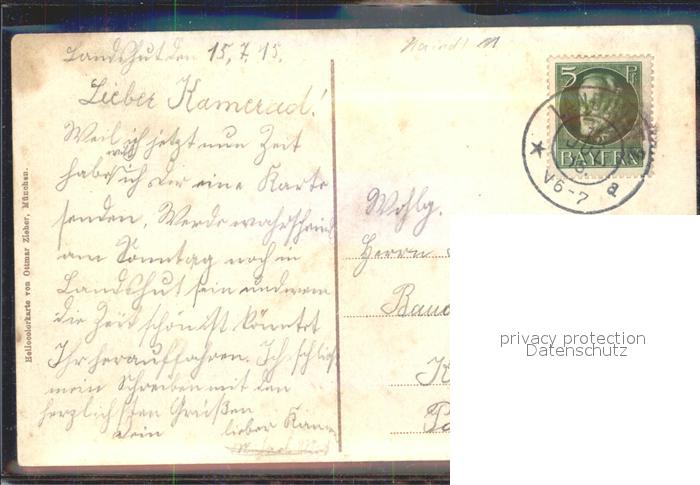 Landshut den 15.7.15.
Lieber Kamerad!
Weil ich jetzt nun Zeit
habe will ich Dir eine Karte
senden. Werde wahrscheinl
am Sonntag noch in
Landshut sein und wenn
die Zeit schön ist könntet
Ihr herauffahren. Ich schließ
mein Schreiben mit den
herzlichsten Grüßen
Dein lieber Kam
Heliocolorkarte von Ottmar Zieher, München.
5 Pf
BAYERN
V6-7 a
Wohlg.
Herrn
privacy protection
Datenschutz